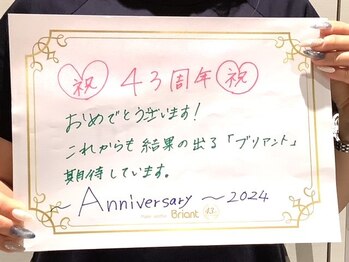 祝 43周年 祝
おめでとうございます!
これからも結果の出る「ブリアント」
期待しています。
〜 Anniversary 〜 2024
Briant